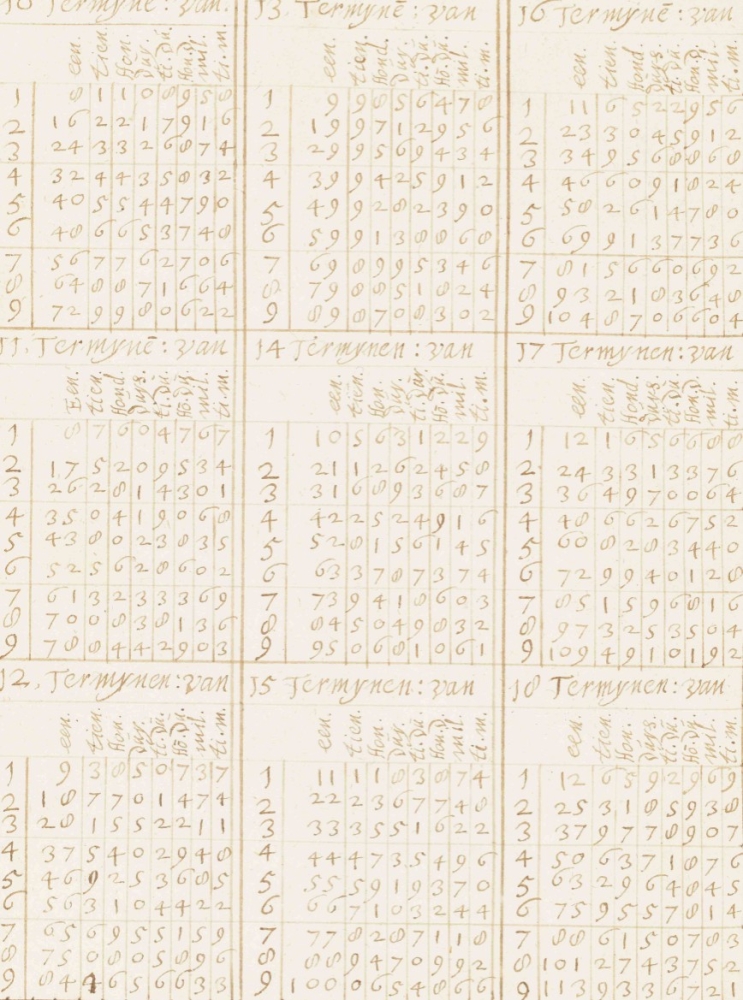 10 Termyne: van.
een. tien. Hon. duy. ti.dū. Hon.dū. mil. ti.m.
1 8 1 1 0 8 9 5 8
2 16 2 2 1 7 9 1 6
3 24 3 3 2 6 8 7 4
4 32 4 4 3 5 8 3 2
5 40 5 5 4 4 7 9 0
6 48 6 6 5 3 7 4 8
7 56 7 7 6 2 7 0 6
8 64 8 8 7 1 6 6 4
9 72 9 9 8 0 6 2 2
11. Termynē: van
Een. tien. Hond. duys. ti.dū. Hō.dū. mil. ti.m.
1 8 7 6 0 4 7 6 7
2 17 5 2 0 9 5 3 4
3 26 2 8 1 4 3 0 1
4 35 0 4 1 9 0 6 8
5 43 8 0 2 3 8 3 5
6 52 5 6 2 8 6 0 2
7 61 3 2 3 3 3 6 9
8 70 0 8 3 8 1 3 6
9 78 8 4 4 2 9 0 3
12. Termynen: van
een. tien. Hon. duy. ti.dū. Hō.dū. mil. ti.m.
1 9 3 8 5 0 7 3 7
2 18 7 7 0 1 4 7 4
3 28 1 5 5 2 2 1 1
4 37 5 4 0 2 9 4 8
5 46 9 2 5 3 6 8 5
6 56 3 1 0 4 4 2 2
7 65 6 9 5 5 1 5 9
8 75 0 8 0 5 8 9 6
9 84 4 6 5 6 6 3 3
13. Termynē: van
een. tien. Hond. duys. ti.dū. Hō.dū. mil. ti.m.
1 9 9 8 5 6 4 7 8
2 19 9 7 1 2 9 5 6
3 29 9 5 6 9 4 3 4
4 39 9 4 2 5 9 1 2
5 49 9 2 8 2 3 9 0
6 59 9 1 3 8 8 6 8
7 69 8 9 9 5 3 4 6
8 79 8 8 5 1 8 2 4
9 89 8 7 0 8 3 0 2
14 Termynen: van
een. tien. Hon. duy. ti.duy Hō.dū. mil. ti.m.
1 10 5 6 3 1 2 2 9
2 21 1 2 6 2 4 5 8
3 31 6 8 9 3 6 8 7
4 42 2 5 2 4 9 1 6
5 52 8 1 5 6 1 4 5
6 63 3 7 8 7 3 7 4
7 73 9 4 1 8 6 0 3
8 84 5 0 4 9 8 3 2
9 95 0 6 8 1 0 6 1
15 Termynen: van
een. tien. Hon. duy. ti.dū. Hon.dū. mil. ti.m.
1 11 1 1 8 3 8 7 4
2 22 2 3 6 7 7 4 8
3 33 3 5 5 1 6 2 2
4 44 4 7 3 5 4 9 6
5 55 5 9 1 9 3 7 0
6 66 7 1 0 3 2 4 4
7 77 8 2 8 7 1 1 8
8 88 9 4 7 0 9 9 2
9 100 0 6 5 4 8 6 6
16 Termynē: van
een. tien. Hond. duys. ti.dū. Hon.dū. mil. ti.m.
1 11 6 5 2 2 9 5 6
2 23 3 0 4 5 9 1 2
3 34 9 5 6 8 8 6 8
4 46 6 0 9 1 8 2 4
5 58 2 6 1 4 7 8 0
6 69 9 1 3 7 7 3 6
7 81 5 6 6 0 6 9 2
8 93 2 1 8 3 6 4 8
9 104 8 7 0 6 6 0 4
17 Termynen: van
een. tien. Hond. duys. ti.dū. Hō.dū. mil. ti.m.
1 12 1 6 5 6 6 8 8
2 24 3 3 1 3 3 7 6
3 36 4 9 7 0 0 6 4
4 48 6 6 2 6 7 5 2
5 60 8 2 8 3 4 4 0
6 72 9 9 4 0 1 2 8
7 85 1 5 9 6 8 1 6
8 97 3 2 5 3 5 0 4
9 109 4 9 1 0 1 9 2
18 Termynen: van
een. tien. Hon. duys. ti.dū. Hō.dū. mil. ti.m.
1 12 6 5 9 2 9 6 9
2 25 3 1 8 5 9 3 8
3 37 9 7 7 8 9 0 7
4 50 6 3 7 1 8 7 6
5 63 2 9 6 4 8 4 5
6 75 9 5 5 7 8 1 4
7 88 6 1 5 0 7 8 3
8 101 2 7 4 3 7 5 2
9 113 9 3 3 6 7 2 1